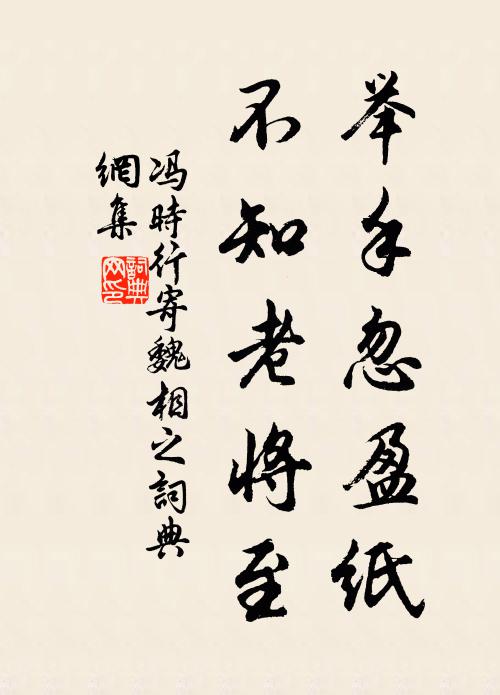 举手忽盈纸
不知老将至
冯時行寄魏相之詞典
網集
詞典網印